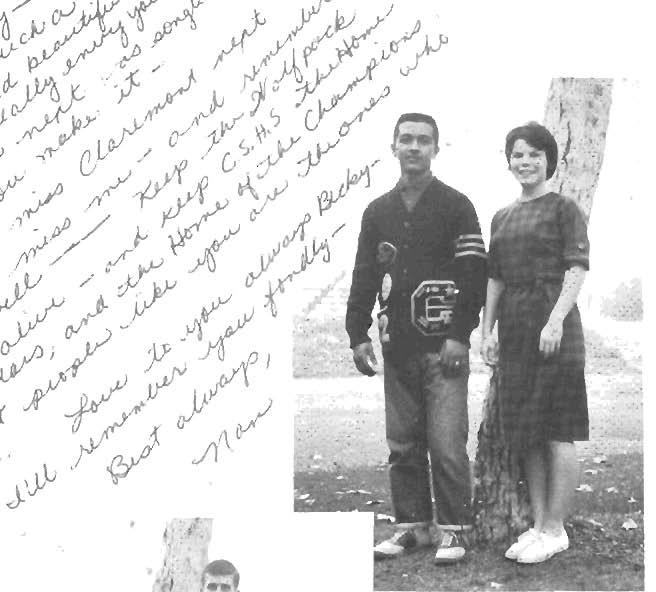 y—
such a
d beautiful
eally envy you
next - as songle
ou make it -
miss Claremont next
miss me - and remember
well — Keep the Wolfpack
alive - and keep C.S.H.S the Home
and the Home of the Champions
people like you are the ones who
Love to you always Becky-
I'll remember you fondly-
Best always,
Nan